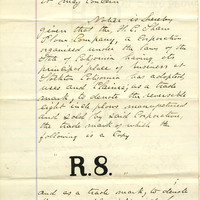 it may concern
Notice is hereby
given that the H. C. Shaw
Plow Company, a Corporation
organized under the laws of the
State of California having its
principal place of business at
Stockton California has adopted,
uses and claims, as a trade
mark, to denote the reversible
eight inch plows manufactured
and sold by said Corporation
the trade mark of which the
following is a Copy
R.8.
and as a trade mark, to denote